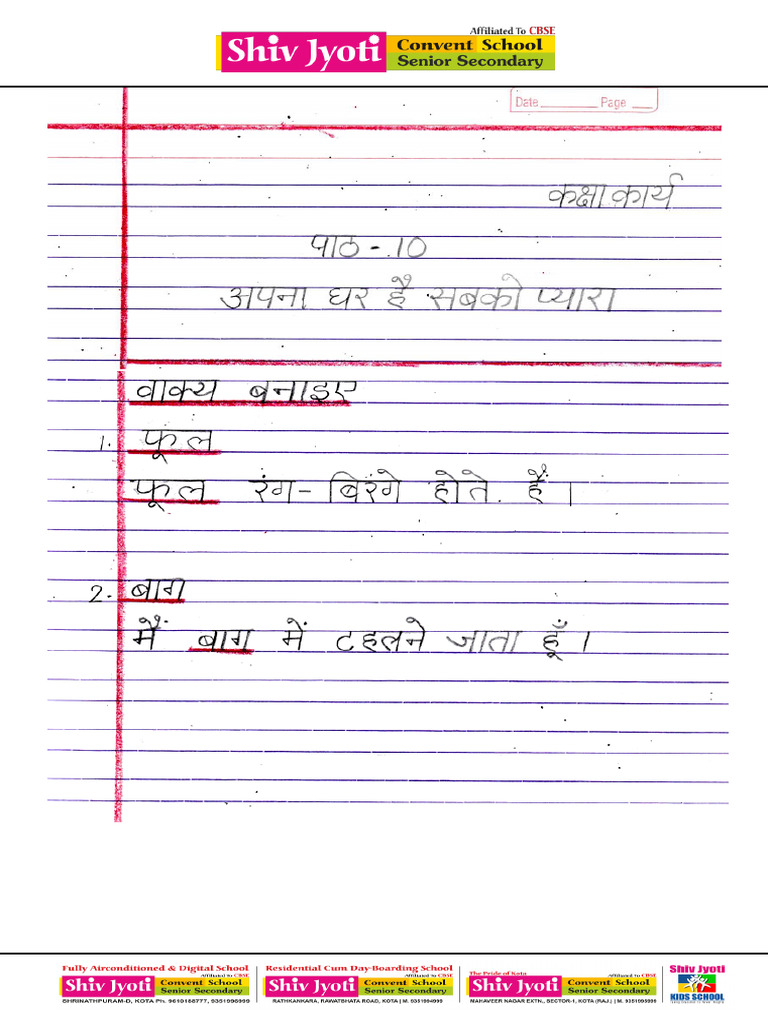 Affiliated To CBSE
Shiv Jyoti Convent School
Senior Secondary
Date Page
कक्षा कार्य
पाठ - 10
अपना घर है सबको प्यारा
वाक्य बनाइए
1. फूल
फूल रंग-बिरंगे होते हैं।
2. बाग
मैं बाग में टहलने जाता हूँ।
Fully Airconditioned & Digital School
Affiliated To CBSE
Shiv Jyoti Convent School
Senior Secondary
SHRINATHPURAM-D, KOTA Ph. 9610188777, 9351998999
Residential Cum Day-Boarding School
Affiliated To CBSE
Shiv Jyoti Convent School
Senior Secondary
RATHKANKARA, RAWATBHATA ROAD, KOTA | M. 9351994999
The Pride of Kota
Affiliated To CBSE
Shiv Jyoti Convent School
Senior Secondary
MAHAVEER NAGAR EXTN., SECTOR-1, KOTA (RAJ.) | M. 9351995999
Shiv Jyoti
KIDS SCHOOL